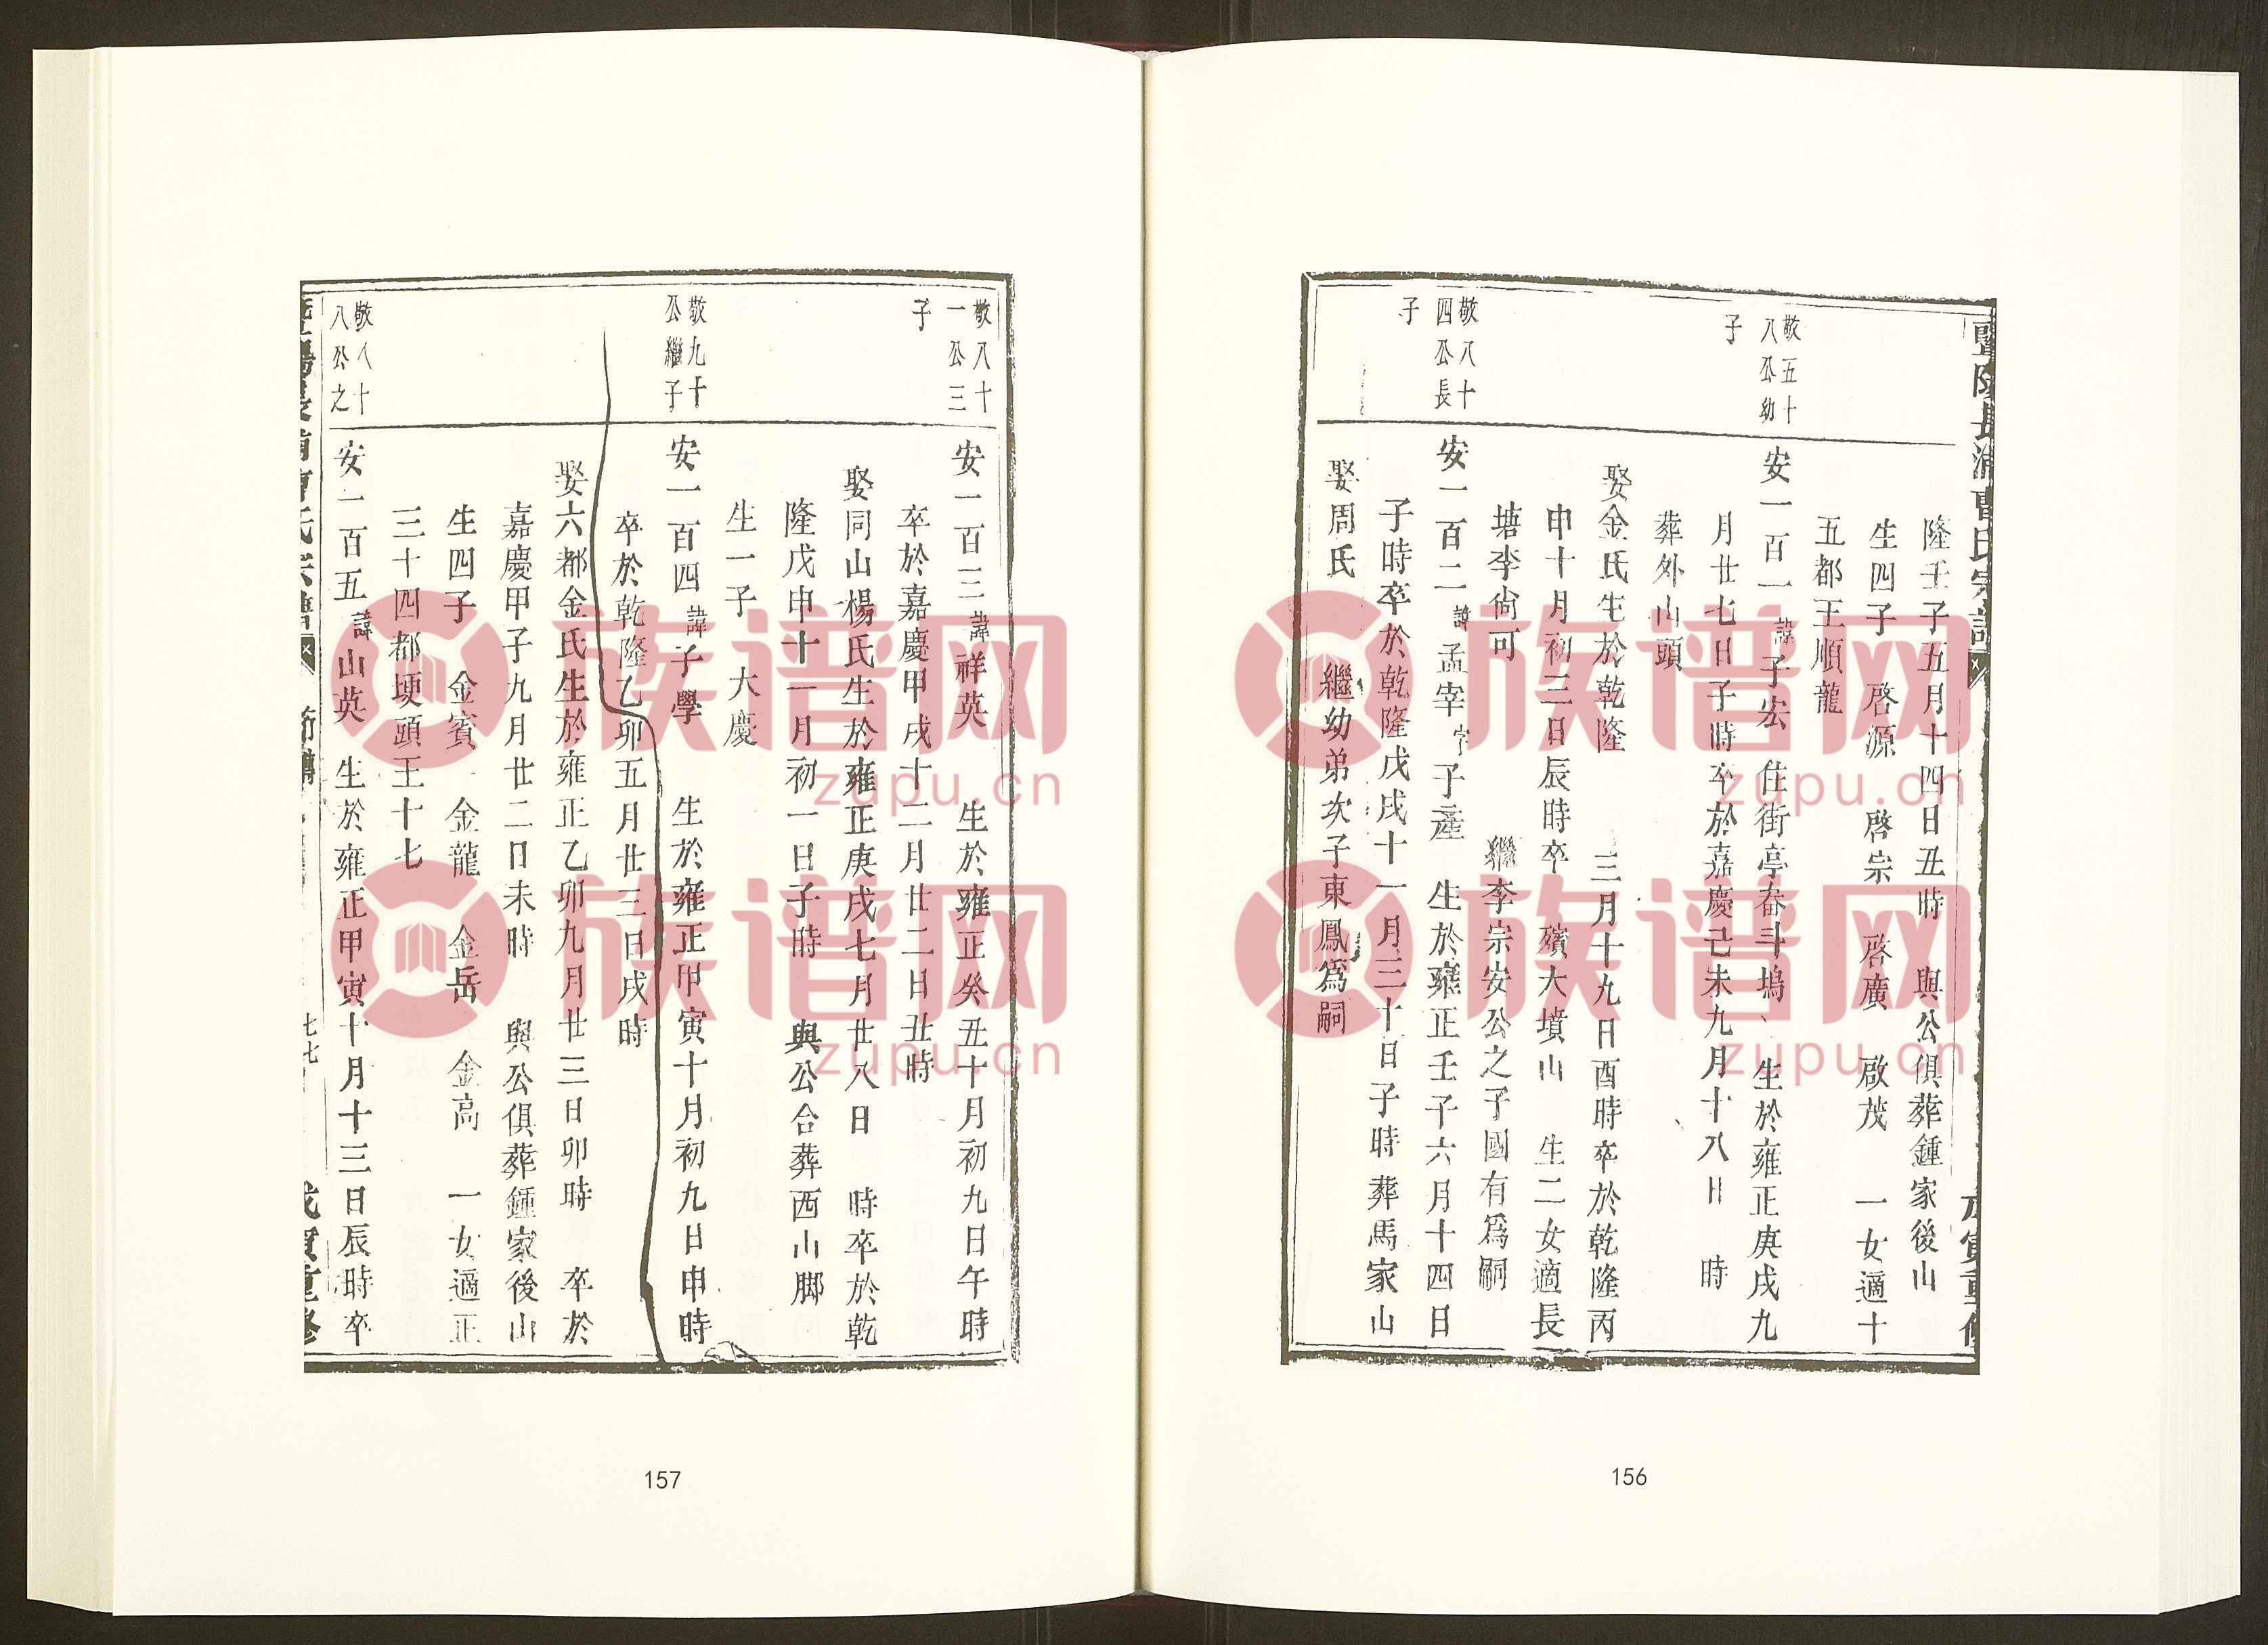 曹氏宗譜
隆壬子五月十四日丑時　與公俱葬鍾家後山
生四子　啓源　啓宗　啓廣　啟茂　一女適十
五都王順龍
敬五十
八公幼
子
安一百一諱子宏　住街亭春斗塢　生於雍正庚戌九
月廿七日子時卒於嘉慶己未九月十八日　時
葬外山頭
娶金氏生於乾隆　三月十九日酉時卒於乾隆丙
申十月初三日辰時卒　殯大墳山　生二女適長
塘李尙可　繼李宗安公之子國有爲嗣
敬八十
四公長
子
安一百二諱孟宰字子產　生於雍正壬子六月十四日
子時卒於乾隆戊戌十一月三十日子時葬馬家山
娶周氏　繼幼弟次子東鳳爲嗣
156
敬八十
一公三
子
安一百三諱祥英　生於雍正癸丑十月初九日午時
卒於嘉慶甲戌十二月廿二日丑時
娶同山楊氏生於雍正庚戌七月廿八日　時卒於乾
隆戊申十一月初一日子時　與公合葬西山脚
生一子　大慶
敬九十
公繼子
安一百四諱子學　生於雍正甲寅十月初九日申時
卒於乾隆乙卯五月廿三日戌時
娶六都金氏生於雍正乙卯九月廿三日卯時　卒於
嘉慶甲子九月廿二日未時　與公俱葬鍾家後山
生四子　金賓　金龍　金岳　金高　一女適正
三十四都埂頭王十七
敬八十
八公之
安一百五諱山英　生於雍正甲寅十月十三日辰時卒
七七
重修
157
族谱网
zupu.cn
族谱网
zupu.cn
族谱网
zupu.cn
族谱网
zupu.cn